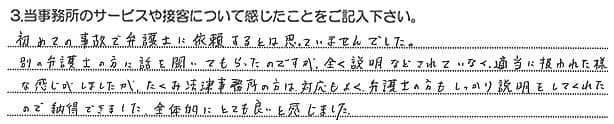 3.当事務所のサービスや接客について感じたことをご記入下さい。
初めての事故で弁護士に依頼するとは思っていませんでした。
別の弁護士の方に話を聞いてもらったのですが、全く説明などされていなく、適当に扱われた様
な感じがしましたが、たくみ法律事務所の方は対応もよく、弁護士の方もしっかり説明をしてくれた
ので納得できました。全体的にとても良いと感じました。